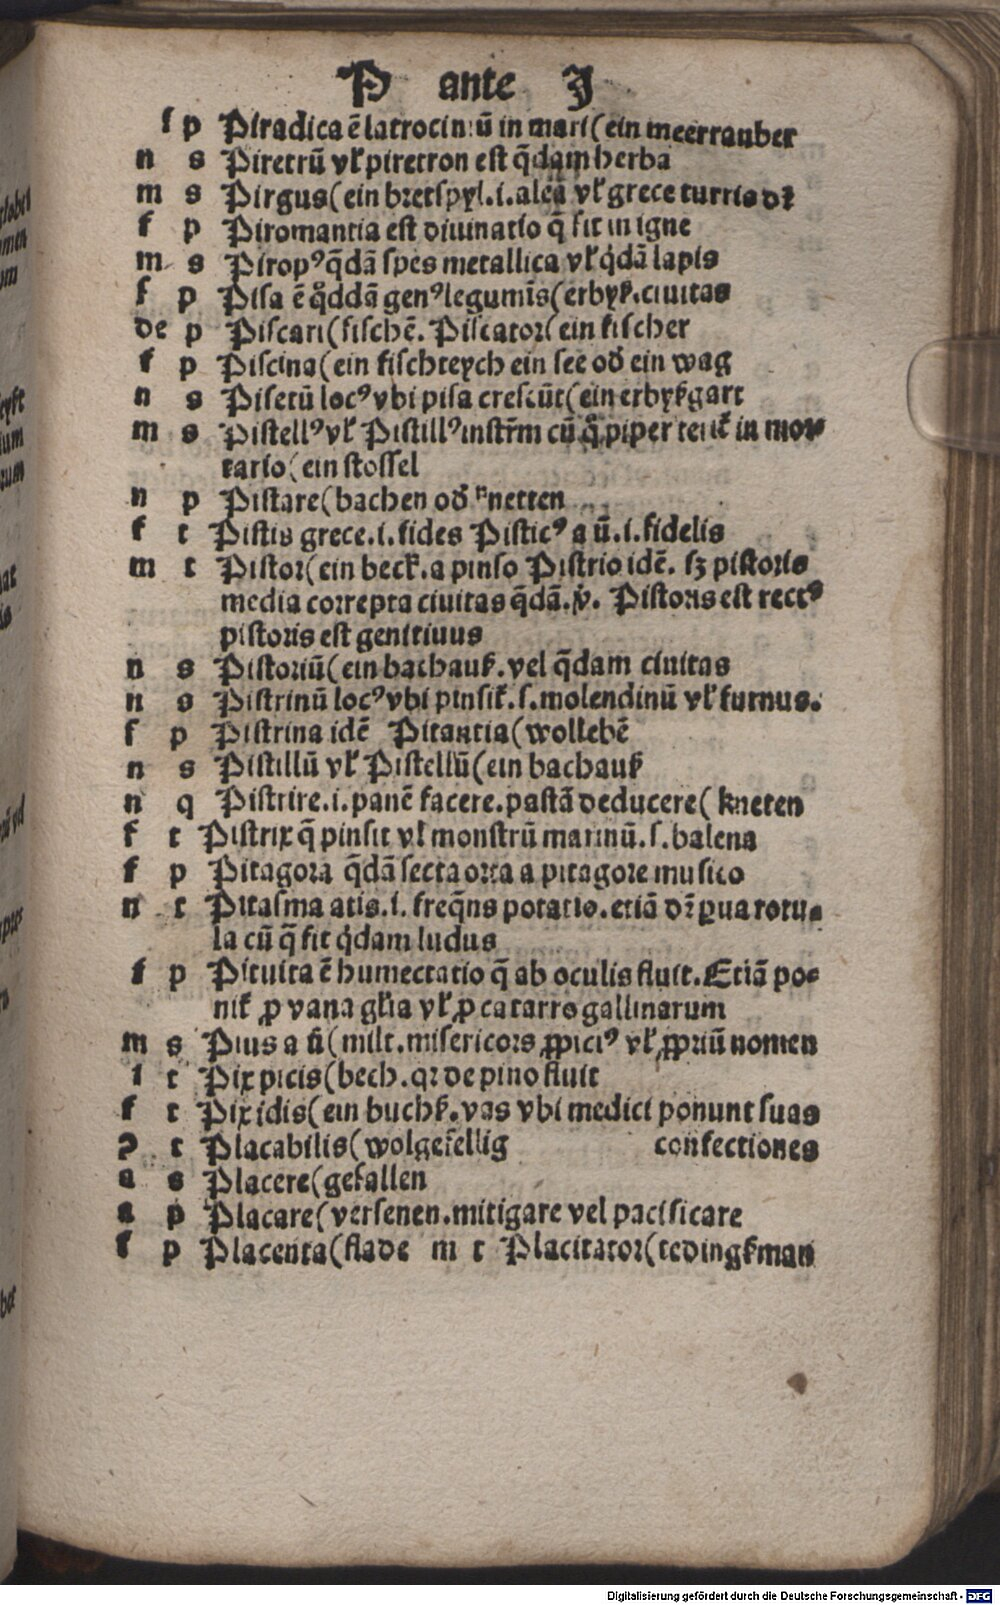 P ante J
f p Piradica ē latrociniū in mari (ein meerrauber
n s Piretrū vl̓ piretron est q̄dam herba
m s Pirgus (ein bretspyl .i. alea vl̓ grece turris
f p Piromantia est diuinatio q̄ fit in igne
m s Piropꝰ q̄dā spēs metallica vl̓ q̇dā lapis
f p Pisa ē q̊ddā genꝰ leguminis (erbyß. ciuitas
de p Piscari (fischē. Piscator (ein fischer
f p Piscina (ein fischteych ein see od̓ ein wag
n s Pisetū locꝰ vbi pisa crescūt (ein erbyßgart
m s Pistellꝰ vl̓ Pistillꝰ instr̄m cū q̊ piper terit̓ in mor⸗
tario (ein stossel
n p Pistare (bachen od̓ knetten
f t Pistis grece .i. fides Pisticꝰ a ū .i. fidelis
m t Pistor (ein beck. a pinso Pistrio idē. sꝫ pistoris
media correpta ciuitas q̄dā. v̓. Pistoris est rectꝰ
pistoris est genitiuus
n s Pistoriū (ein bachauß. vel q̄dam ciuitas
n s Pistrinū locꝰ vbi pinsit̓. s. molendinū vl̓ furnus.
f p Pistrina idē Pitantia (wollebē
n s Pistillū vl̓ Pistellū (ein bachauß
n q Pistrire .i. panē facere. pastā deducere (kneten
f t Pistrix q̄ pinsit vl̓ monstrū marinū .s. balena
f p Pitagora q̄dā secta orta a pitagore musico
n t Pitasma atis .i. freq̄ns potatio. etiā dr̄ ꝑua rotu⸗
la cū q̄ fit q̇dam ludus
f p Pituita ē humectatio q̄ ab oculis fluit. Etiā po⸗
nit̓ ꝓ vana gl̓ia vl̓ ꝓ catarro gallinarum
m s Pius a ū (milt. misericors ꝓpiciꝰ vl̓ ꝓpriū nomen
i t Pix picis (bech. qꝛ de pino fluit
f t Pix idis (ein buchß. vas vbi medici ponunt suas
ꝯ t Placabilis (wolgefellig confectiones
a s Placere (gefallen
a p Placare (versenen. mitigare vel pacificare
f p Placenta (flade m t Placitator (tedingßman
Digitalisierung gefördert durch die Deutsche Forschungsgemeinschaft - DFG